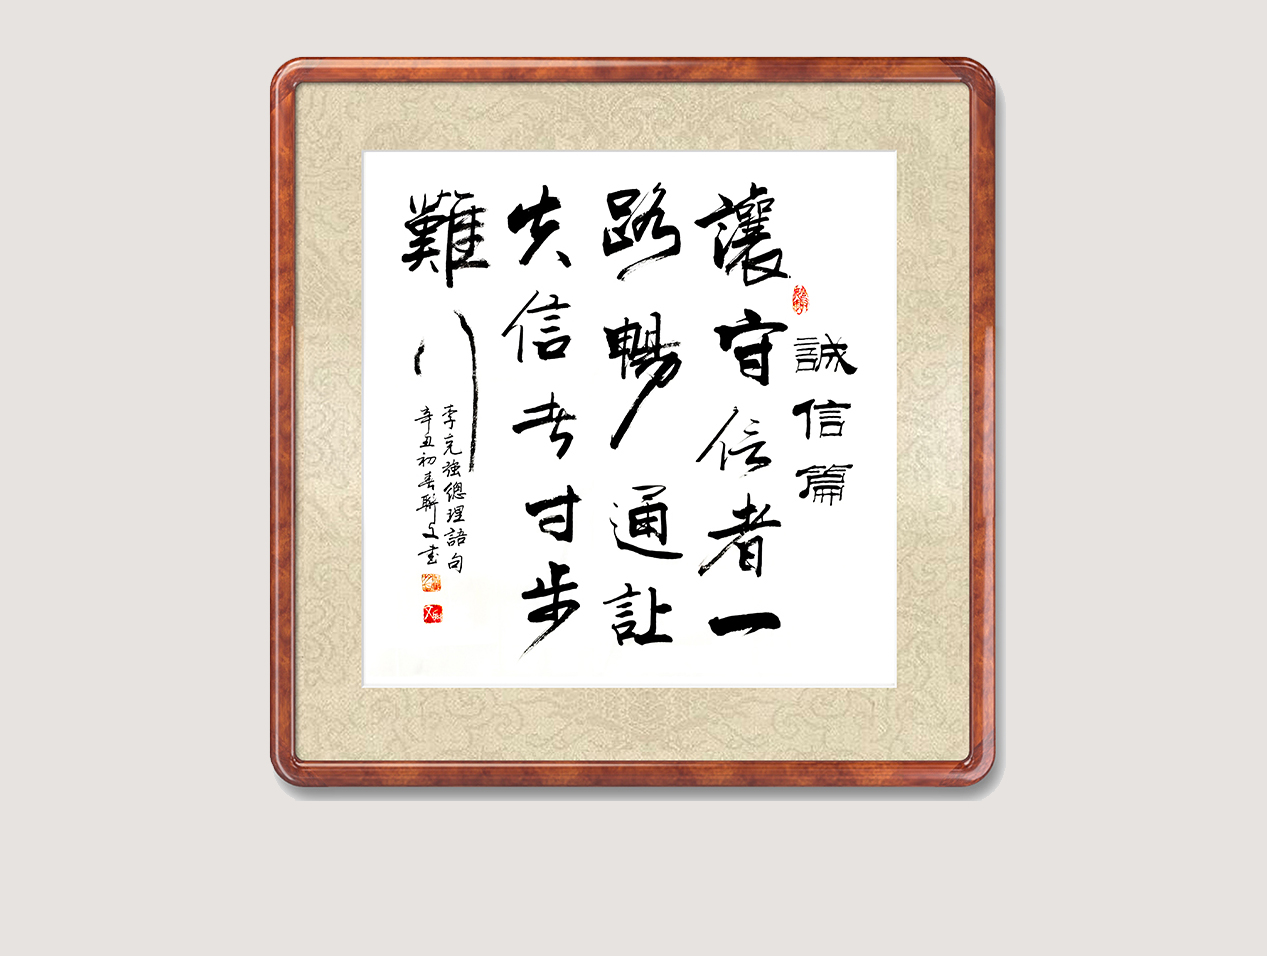 誠信篇
讓守信者一
路暢通让
失信者寸步
難行
李克強總理語句
辛丑初春聯文書